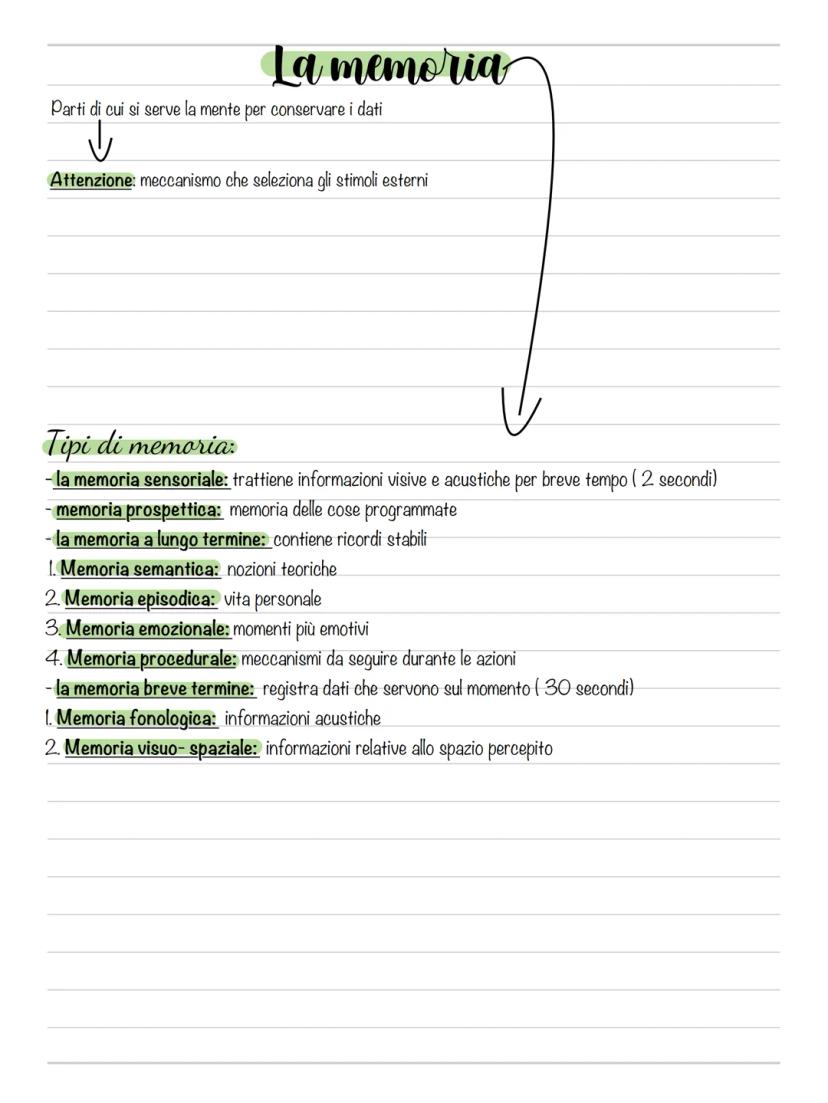 La memoria
Parti di cui si serve la mente per conservare i dati
Attenzione: meccanismo che seleziona gli stimoli esterni
Tipi di memoria:
- la memoria sensoriale: trattiene informazioni visive e acustiche per breve tempo ( 2 secondi)
- memoria prospettica: memoria delle cose programmate
- la memoria a lungo termine: contiene ricordi stabili
1. Memoria semantica: nozioni teoriche
2. Memoria episodica: vita personale
3. Memoria emozionale: momenti più emotivi
4. Memoria procedurale: meccanismi da seguire durante le azioni
- la memoria breve termine: registra dati che servono sul momento ( 30 secondi)
1. Memoria fonologica: informazioni acustiche
2. Memoria visuo- spaziale: informazioni relative allo spazio percepito